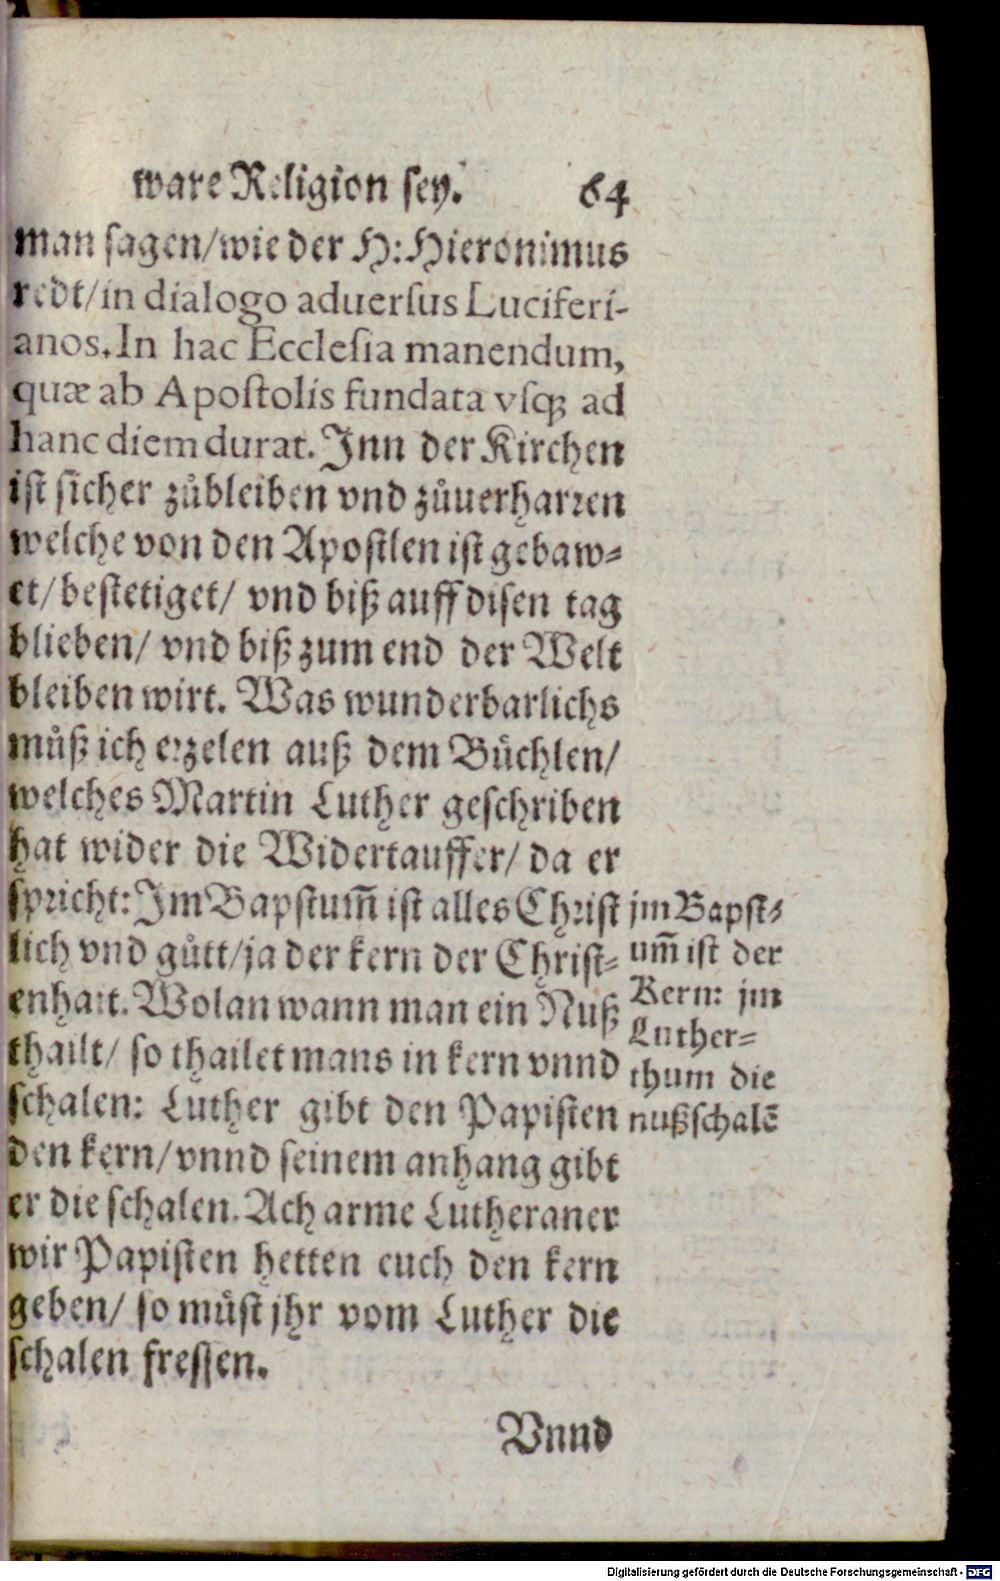 ware Religion sey. 64
man ſagen/wie der H: Hieronimus
redt/in dialogo aduerſus Luciferi-
anos. In hac Eccleſia manendum,
quæ ab Apoſtolis fundata vſqꝫ ad
hanc diem durat. Inn der Kirchen
iſt ſicher zůbleiben vnd zůuerharꝛen
welche von den Apoſtlen iſt gebaw⸗
et/ beſtetiget/ vnd biß auff diſen tag
blieben/ vnd biß zum end der Welt
bleiben wirt. Was wunderbarlichs
můß ich erzelen auß dem Büchlen/
welches Martin Luther geſchriben
hat wider die Widertauffer/ da er
ſpricht: Im Bapſtum̃ iſt alles Chꝛiſt
lich vnd gůtt/ja der kern der Chꝛiſt⸗
enhait. Wolan wann man ein Nuß
thailt/ ſo thailet mans in kern vnnd
ſchalen: Luther gibt den Papiſten
den kern/vnnd ſeinem anhang gibt
er die ſchalen. Ach arme Lutheraner
wir Papiſten hetten euch den kern
geben/ ſo můſt jhr vom Luther die
ſchalen freſſen.
jm Bapſt⸗
um̃ iſt der
Kern: jm
Luther⸗
thum die
nußſchalẽ
Vnnd
Digitalisierung gefördert durch die Deutsche Forschungsgemeinschaft - DFG